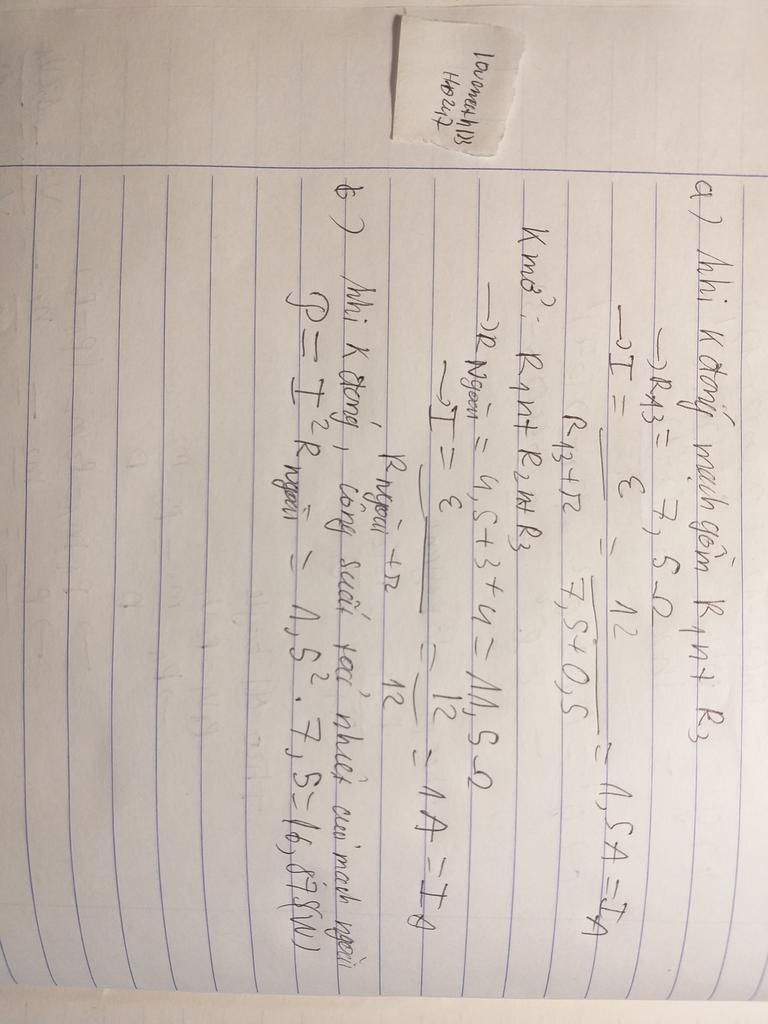 a) khi K đóng mạch gồm R1 nt R3
→ R13 = 7,5 Ω
→ I = ε / (R13 + r) = 12 / (7,5 + 0,5) = 1,5 A = IA
K mở : R1 nt R2 nt R3
→ R Ngoài = 4,5 + 3 + 4 = 11,5 Ω
→ I = ε / (R ngoài + r) = 12 / 12 = 1 A = IA
b) khi K đóng, công suất toả nhiệt của mạch ngoài
P = I² R ngoài = 1,5² . 7,5 = 16,875(W)